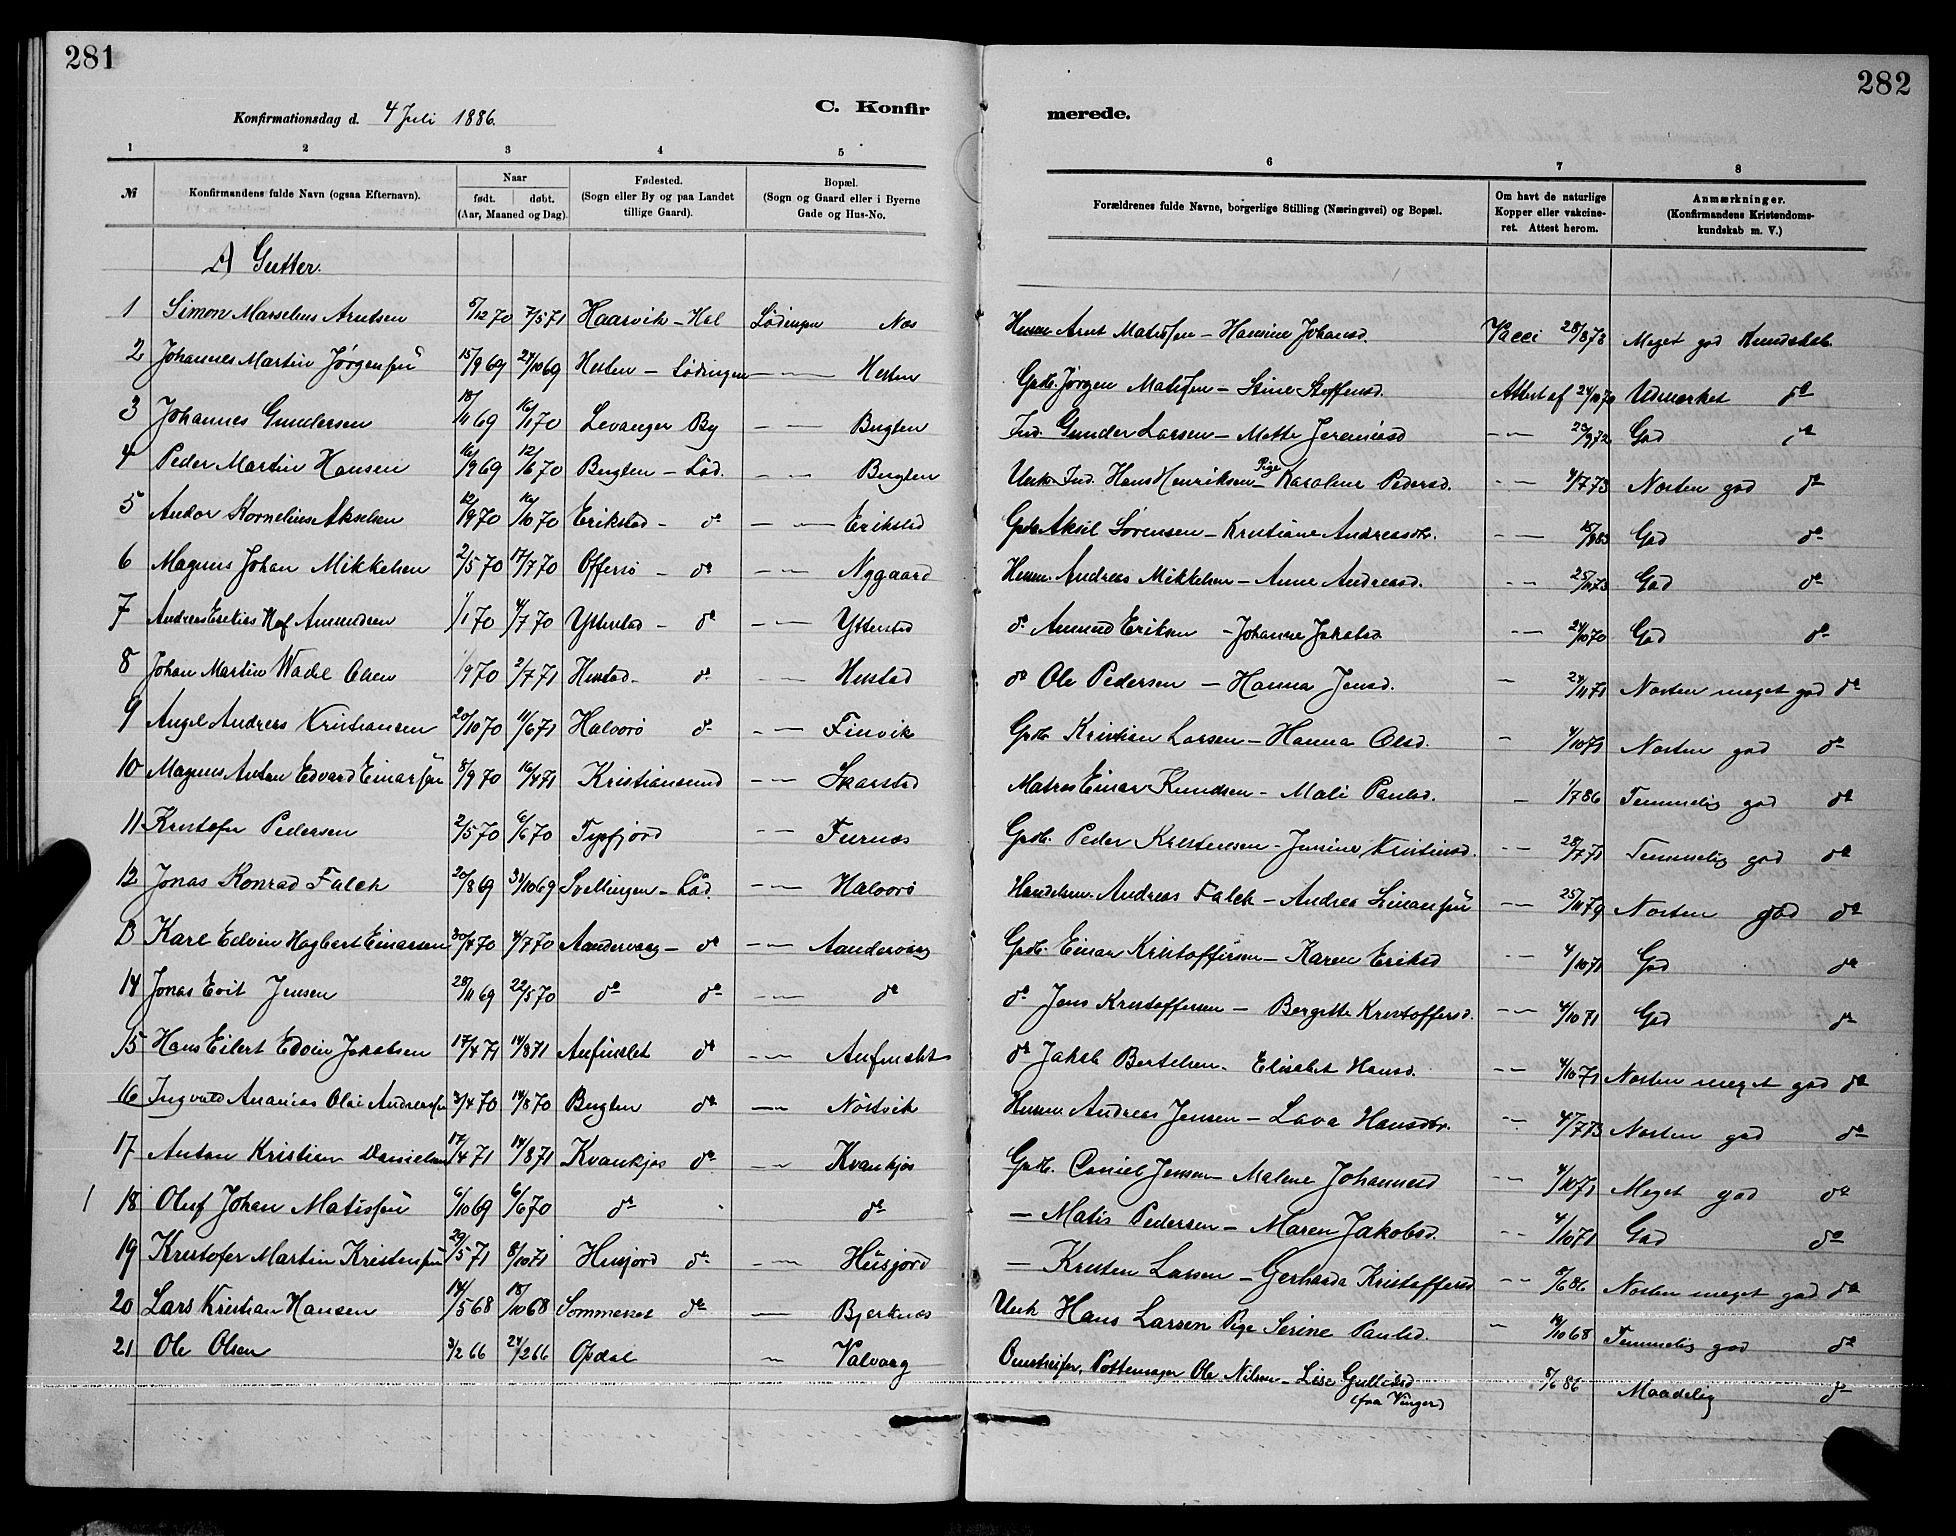 281
282
C. Konfirmerede.
Konfirmationsdag d. 4 Juli 1886.
1 2 3 4 5 6 7 8
№ Konfirmandens fulde Navn (ogsaa Efternavn). Naar født. døbt. (Aar, Maaned og Dag). Fødested. (Sogn eller By og paa Landet tillige Gaard). Bopæl. (Sogn og Gaard eller i Byerne Gade og Hus-No. Forældrenes fulde Navne, borgerlige Stilling (Næringsvei) og Bopæl. Om havt de naturlige Kopper eller vakcineret. Attest herom. Anmærkninger. (Konfirmandens Kristendomskundskab m. V.)
A) Gutter.
1 Simon Marselius Arntsen 5/12 70 7/5 71 Haarvik - Hol Lødingen Næs Husm. Arnt Matisen - Hansine Johansd. Vacci 28/8 73 Meget god Kundskab
2 Johannes Martin Jørgensen 15/9 69 24/10 69 Hesten - Lødingen — Hesten Gaardb. Jørgen Matisen - Stine Steffensd. Attest af 24/10 70 Udmærket do
3 Johannes Gundersen 18/11 69 16/1 70 Levanger By — Buglen Ind. Gunder Larsen - Mette Jeremiasd — 23/9 72 God do
4 Peder Martin Hansen 16/9 69 12/6 70 Buglen - Lød. — Buglen Unk. Ind. Hans Henriksen - Pige Karoline Pedersd. — 4/7 73 Næsten god do
5 Andor Kornelius Akselsen 12/9 70 16/10 70 Erikstad - do — Erikstad Gaardb. Aksel Sørensen - Kristiane Andreasdtr. — 15/8 83 God do
6 Magnus Johan Mikkelsen 2/5 70 17/7 70 Offersø - do — Nygaard Husm. Andreas Mikkelsen - Anne Andreasd. — 25/10 73 God do
7 Andreas Esekias Hof Amundsen 1/1 70 4/7 70 Ytterstad - do — Ytterstad do Amund Eriksen - Johanne Jakobsd. — 24/10 70 God do
8 Johan Martin Wadel Olsen 1/9 70 2/7 71 Hustad - do — Hustad do Ole Pedersen - Hanna Jensd. — 24/11 71 Næsten meget god do
9 Angel Andreas Kristiansen 20/10 70 11/6 71 Halvorø do — Finvik Gaardb. Kristian Larsen - Hanna Olsd. — 4/10 71 Næsten god do
10 Magnus Anton Edvard Einarsen 8/9 70 16/4 71 Kristiansund — Skarstad Matros Einar Knudsen - Mali Paulsd. — 1/7 86 Temmelig god do
11 Kristofer Pedersen 2/5 70 6/6 70 Tysfjord — Furnæs Gaardb. Peder Kristensen - Jensine Kristensd. — 28/7 71 Temmelig god do
12 Jonas Konrad Falch 20/8 69 31/10 69 Svellingen - Lød. — Halvorø Handelsm. Andreas Falch - Andrea — 25/11 79 Næsten god do
13 Karl Edvin Hagbert Einarsen 30/4 70 4/7 70 Aandervaag - do — Aandervaag Gaardb. Einar Kristoffersen - Karen Eriksd — 4/10 71 God do
14 Jonas Evit Jensen 28/11 69 22/5 70 do do — do do Jens Kristoffersen - Bergitte Kristoffersd. — 4/10 71 God do
15 Hans Eilert Edvin Jakobsen 17/4 71 14/8 71 Anfinslet do — Anfinslet do Jakob Bertelsen. Elisabet Hansd. — 4/10 71 Næsten meget god do
16 Ingvald Ananias Olai Andreassen 3/4 70 14/8 70 Buglen do — Nøstvik Husm. Andreas Jensen - Lava Hansdtr. — 4/7 73 Næsten god do
17 Anton Kristian Danielsen 17/4 71 14/8 71 Kvankjos do — Kvankjos Gaardb. Daniel Jensen - Malene Johannesd — 4/10 71 Meget god do
18 Oluf Johan Matissen 6/10 69 6/6 70 do do — Matis Pedersen - Maren Jakobsd. — 4/10 71 God do
19 Kristofer Martin Kristensen 29/5 71 8/10 71 Husjord do — Husjord — Kristen Larsen - Gerharda Kristoffersd — 5/6 86 Næsten meget god do
20 Lars Kristian Hansen 14/5 68 18/10 68 Sommeset do — Bjerknæs Unk Hans Larsen Pige Serine Paulsd. — 14/10 68 Temmelig god do
21 Ole Olsen 3/2 66 24/2 66 Opdal — Valvaag Omstreifer, Pottemager Ole Nilsen - Lise Gulliksd (fra Vinger) 5/6 86 Maadelig do